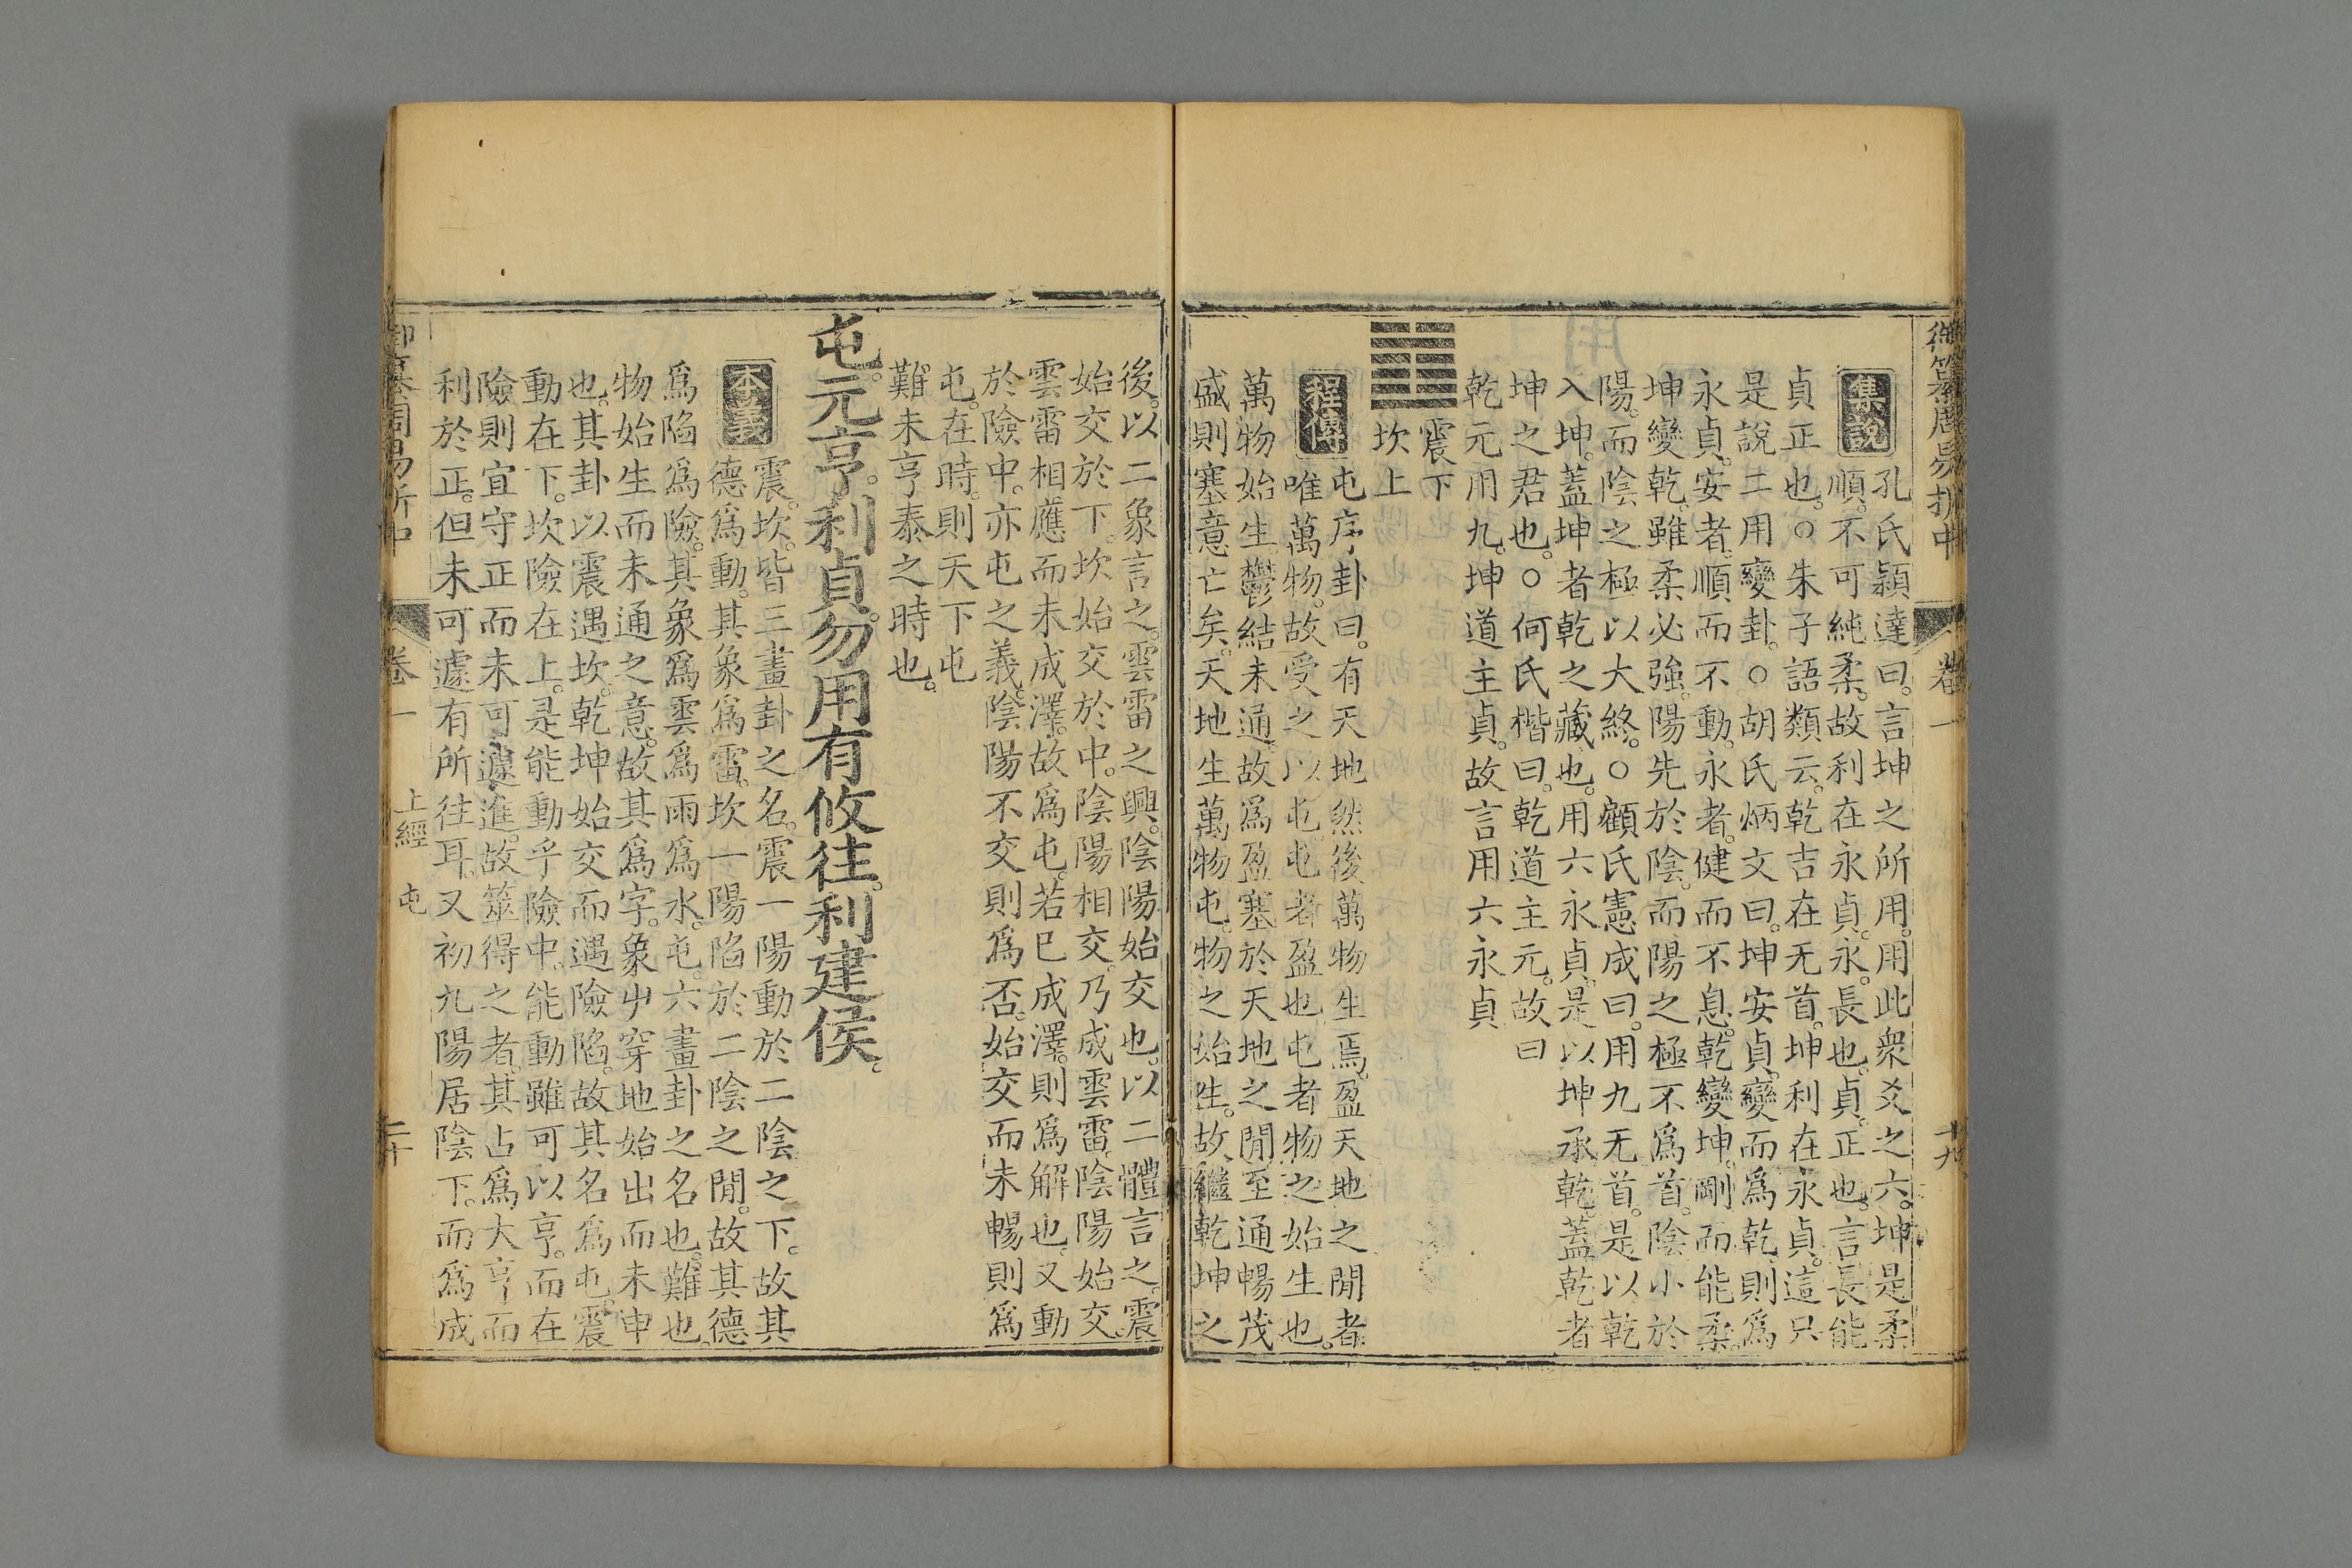 御纂周易折中
卷一
十九
集說
孔氏穎達曰。言坤之所用。用此衆爻之六。坤是柔
順。不可純柔。故利在永貞。永。長也。貞。正也。言長能
貞正也。○朱子語類云。乾吉在无首。坤利在永貞。這只
是說二用變卦。○胡氏炳文曰。坤安貞。變而爲乾。則爲
永貞。安者。順而不動。永者。健而不息。乾變坤。剛而能柔。
坤變乾。雖柔必強。陽先於陰。而陽之極不爲首。陰小於
陽。而陰之極以大終。○顧氏憲成曰。用九无首。是以乾
入坤。蓋坤者乾之藏也。用六永貞。是以坤承乾。蓋乾者
坤之君也。○何氏楷曰。乾道主元。故曰
乾元用九。坤道主貞。故言用六永貞
震下
坎上
程傳
屯序卦曰。有天地然後萬物生焉。盈天地之閒者
唯萬物。故受之以屯。屯者盈也屯者物之始生也。
萬物始生。鬱結未通。故爲盈塞於天地之閒至通暢茂
盛則塞意亡矣。天地生萬物屯。物之始生。故繼乾坤之
後。以二象言之。雲雷之興。陰陽始交也。以二體言之。震
始交於下。坎始交於中。陰陽相交。乃成雲雷。陰陽始交。
雲雷相應而未成澤。故爲屯。若已成澤。則爲解也。又動
於險中。亦屯之義。陰陽不交則爲否。始交而未暢則爲
屯。在時。則天下屯
難未亨泰之時也。
屯。元亨。利貞。勿用有攸往。利建侯。
本義
震。坎。皆三畫卦之名。震一陽動於二陰之下。故其
德爲動。其象爲雷。坎一陽陷於二陰之閒。故其德
爲陷爲險。其象爲雲爲雨爲水。屯。六畫卦之名也。難也。
物始生而未通之意。故其爲字。象屮穿地始出而未申
也。其卦以震遇坎。乾坤始交而遇險陷。故其名爲屯。震
動在下。坎險在上。是能動乎險中。能動雖可以亨。而在
險則宜守正而未可遽進。故筮得之者。其占爲大亨而
利於正。但未可遽有所往耳。又初九陽居陰下。而爲成
御纂周易折中
卷一
上經 屯
二十